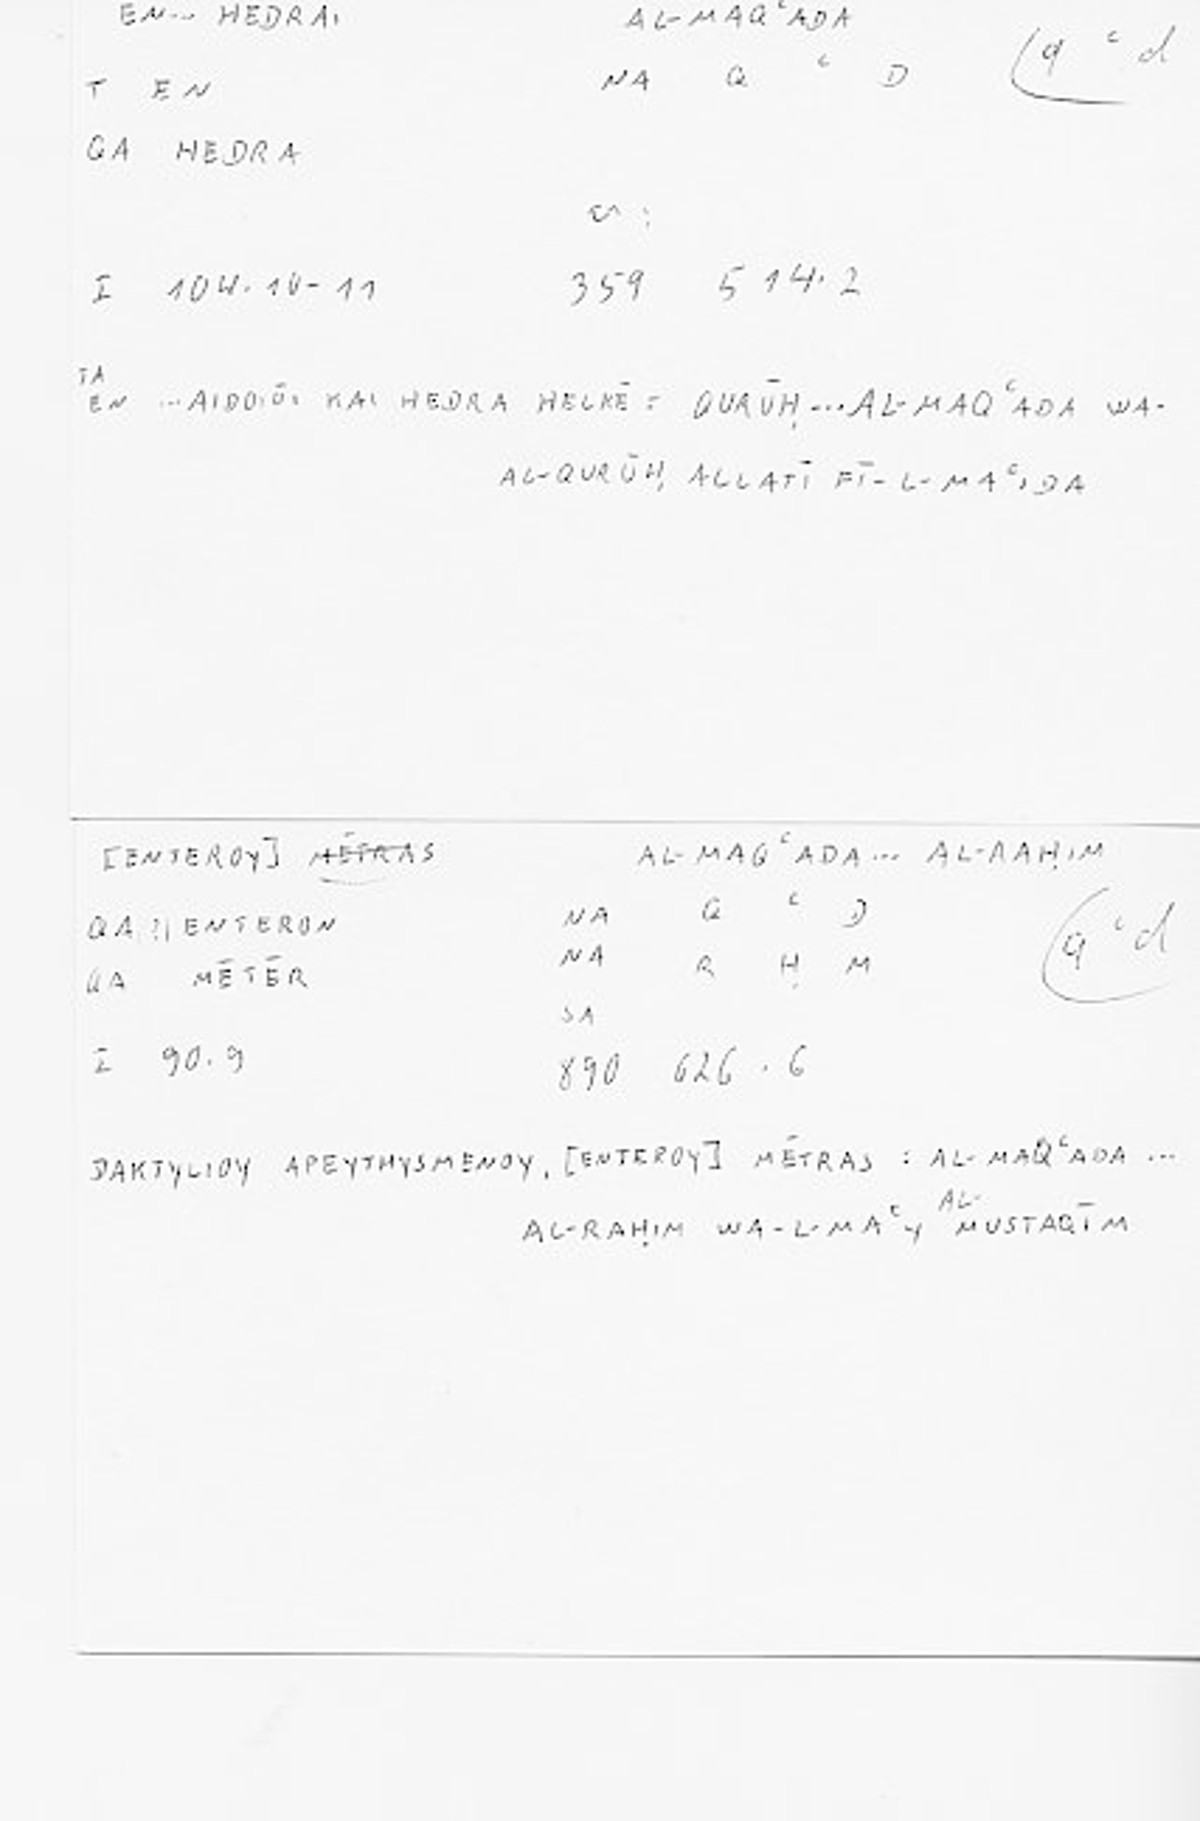 EN... HEDRAI AL-MAQʿADA
T EN NA Q ʿ D q ʿ d
QA HEDRA
I 104.10-11 359 514.2
TA
EN ...AIDOIŌI KAI HEDRA HELKĒ : QURŪḤ...AL-MAQʿADA WA-
AL-QURŪḤ ALLATĪ FĪ-L-MAʿIDA
[ENTEROY] MĒTRAS AL-MAQʿADA... AL-RAḤIM
QA ENTERON NA Q ʿ D q ʿ d
QA MĒTĒR NA R Ḥ M
SA
I 90.9 890 626.6
DAKTYLIOY APEYTHYSMENOY, [ENTEROY] MĒTRAS : AL-MAQʿADA ...
AL-RAḤIM WA-L-MAʿY AL-MUSTAQĪM